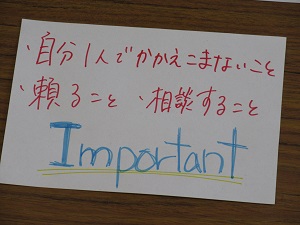 ・自分1人でかかえこまないこと
・頼ること ・相談すること
Important